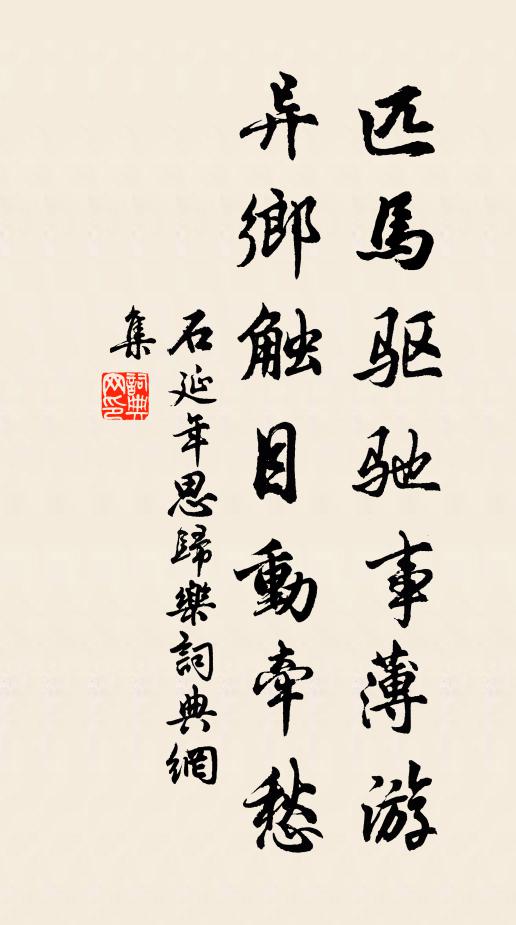 匹馬驱驰事薄游
异鄉触目動牽愁
石延年思歸樂詞典網
集
詞典
网印